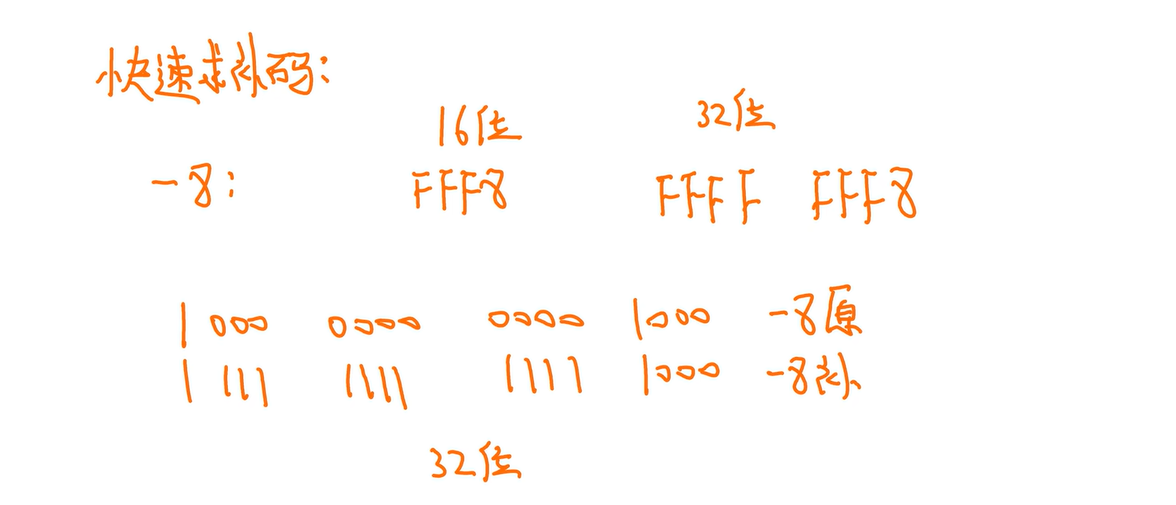 快速求补码:
16位 32位
-8: FFF8 FFFF FFF8
1000 0000 0000 1000 -8原
1111 1111 1111 1000 -8补
32位